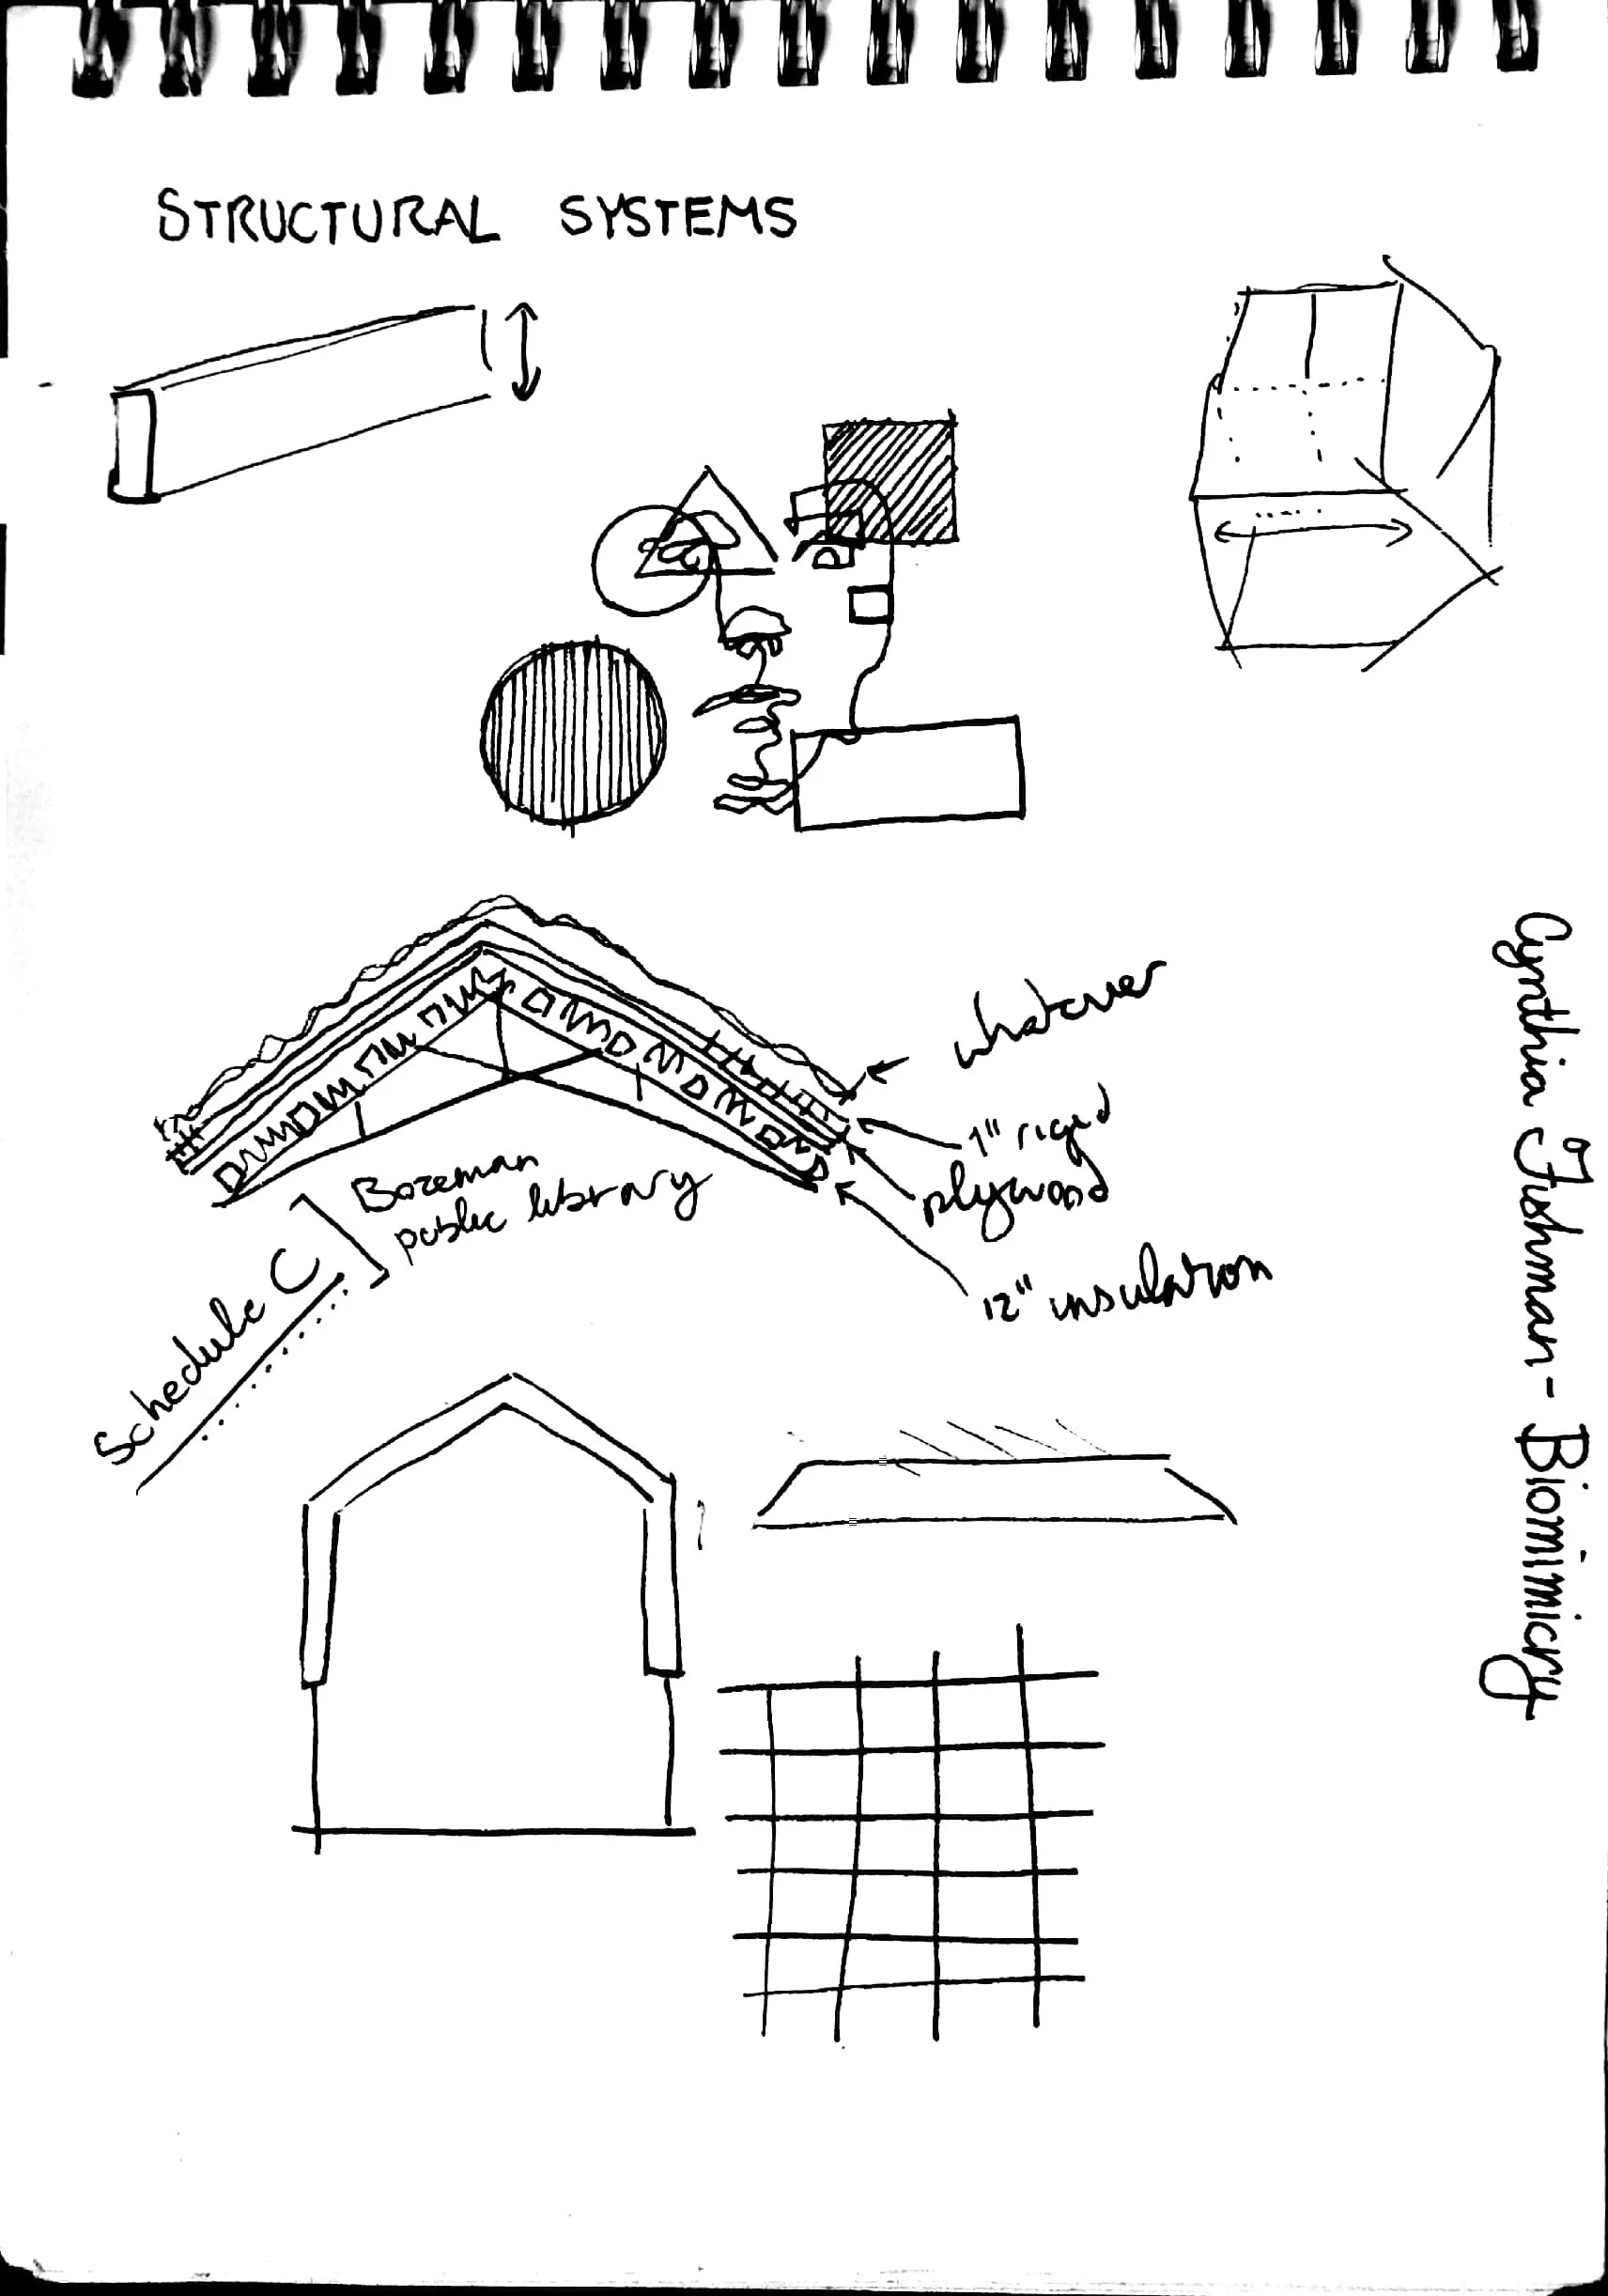 STRUCTURAL SYSTEMS
whatever
1" rigid
plywood
12" insulation
Bozeman
public library
Schedule C
Cynthia Fishman - Biomimicry